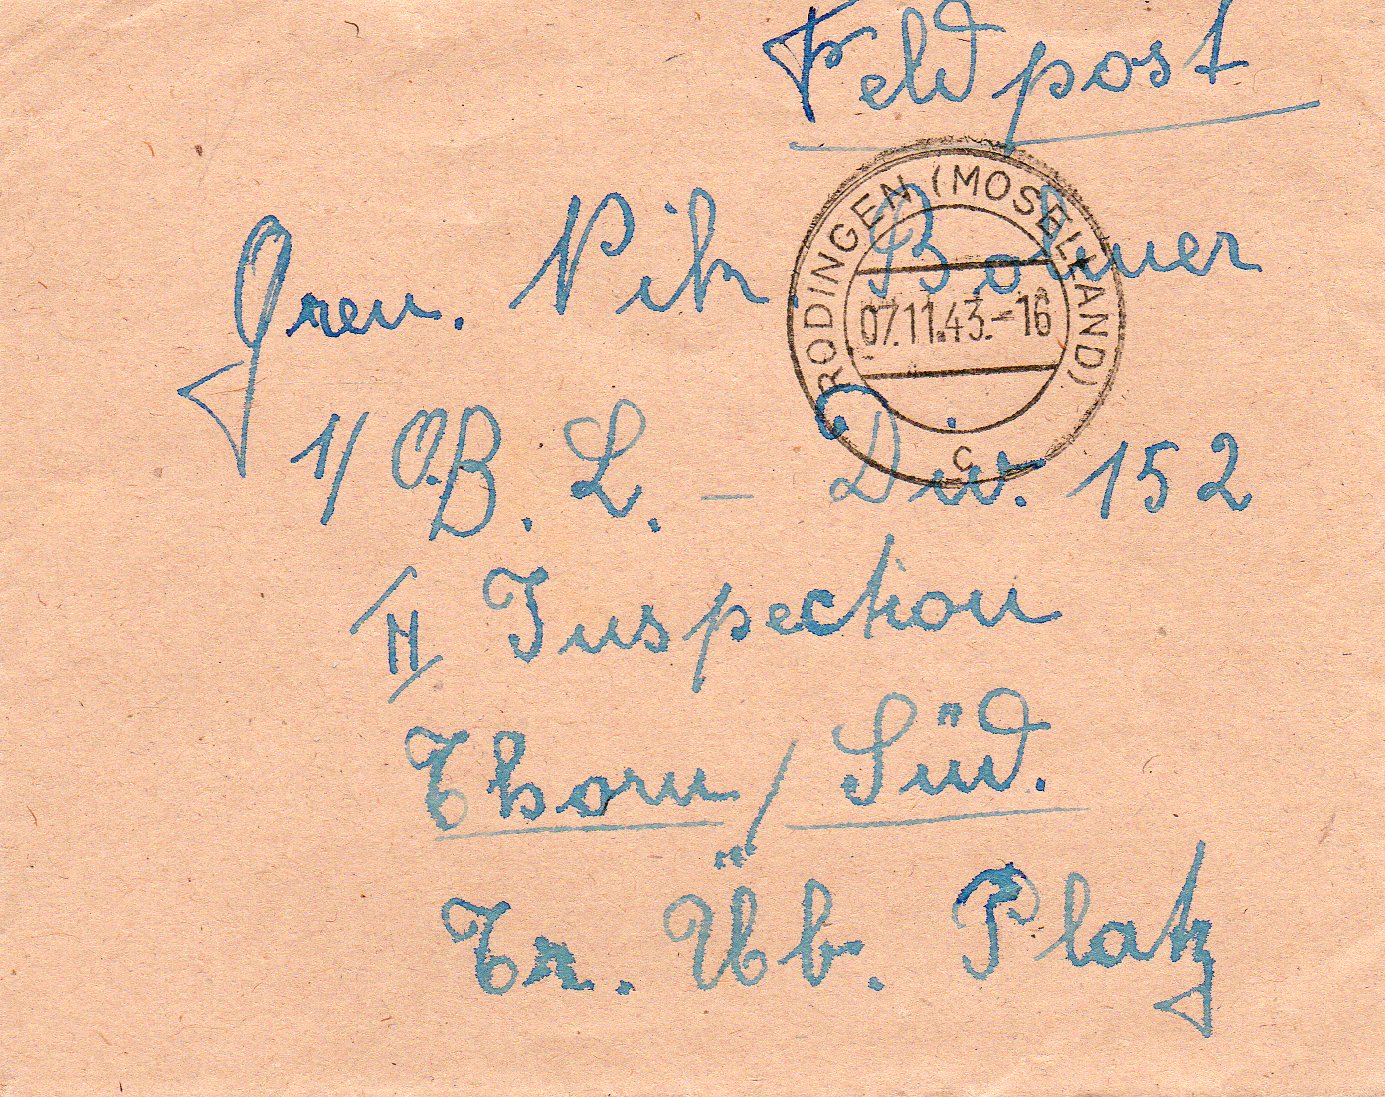 Feldpost
RODINGEN (MOSELLAND)
07.11.43.-16
c
Gren. Nik. Bodmer
1/ O.B. L. - Div. 152
II Inspection
Thorn / Süd.
Tr. Üb. Platz